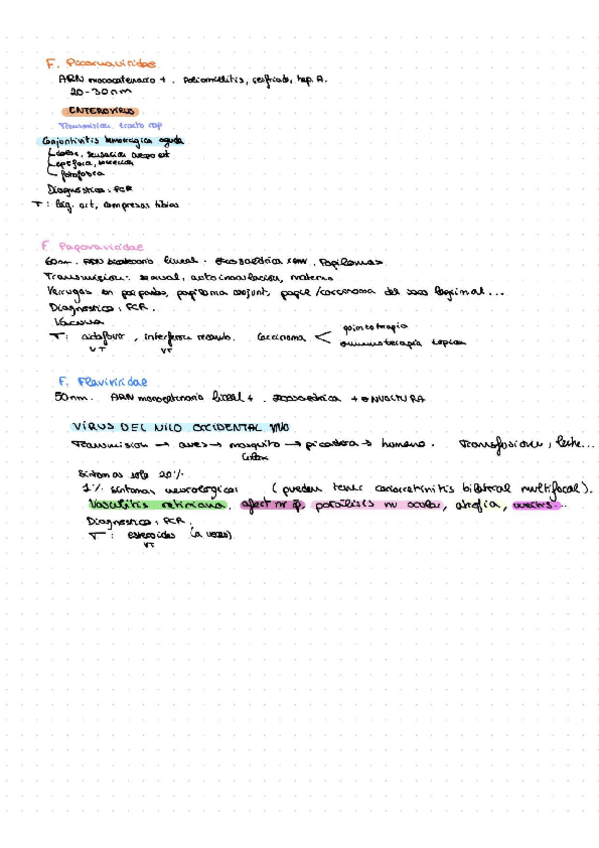 F. Picornaviridae
ARN monocatenario + . Poliomielitis, resfriado, hep. A.
20-30nm
ENTEROVIRUS
Transmisión: tracto resp
Conjuntivitis hemorrágica aguda
sensación cuerpo ext
epífora, secreción
fotofobia
Diagnóstico: PCR
T: lág. art, compresas tibias
F. Papovaviridae
60nm. ADN bicatenario lineal. Papilomas.
Transmisión: sexual, autoinoculación, materna
Verrugas en párpados, papiloma conjunt, papil/carcinoma del saco lagrimal...
Diagnóstico: PCR.
Vacuna
T: cidofovir, interferón recomb. Carcinoma < quimioterapia
VT VT inmunoterapia tópica
F. Flaviviridae
50nm. ARN monocatenario lineal + . Icosaédrica + ENVOLTURA
VÍRUS DEL NILO OCCIDENTAL VNO
Transmisión → aves → mosquito → picadura → humano. Transfusiones, leche...
Culex
Síntomas solo 20%
1% síntomas neurológicos (pueden tener coriorretinitis bilateral multifocal).
Vasculitis retiniana, afect nr óp, parálisis nv ocular, atrofia, uveitis...
Diagnóstico: PCR.
T: esteroides (a veces)
VT